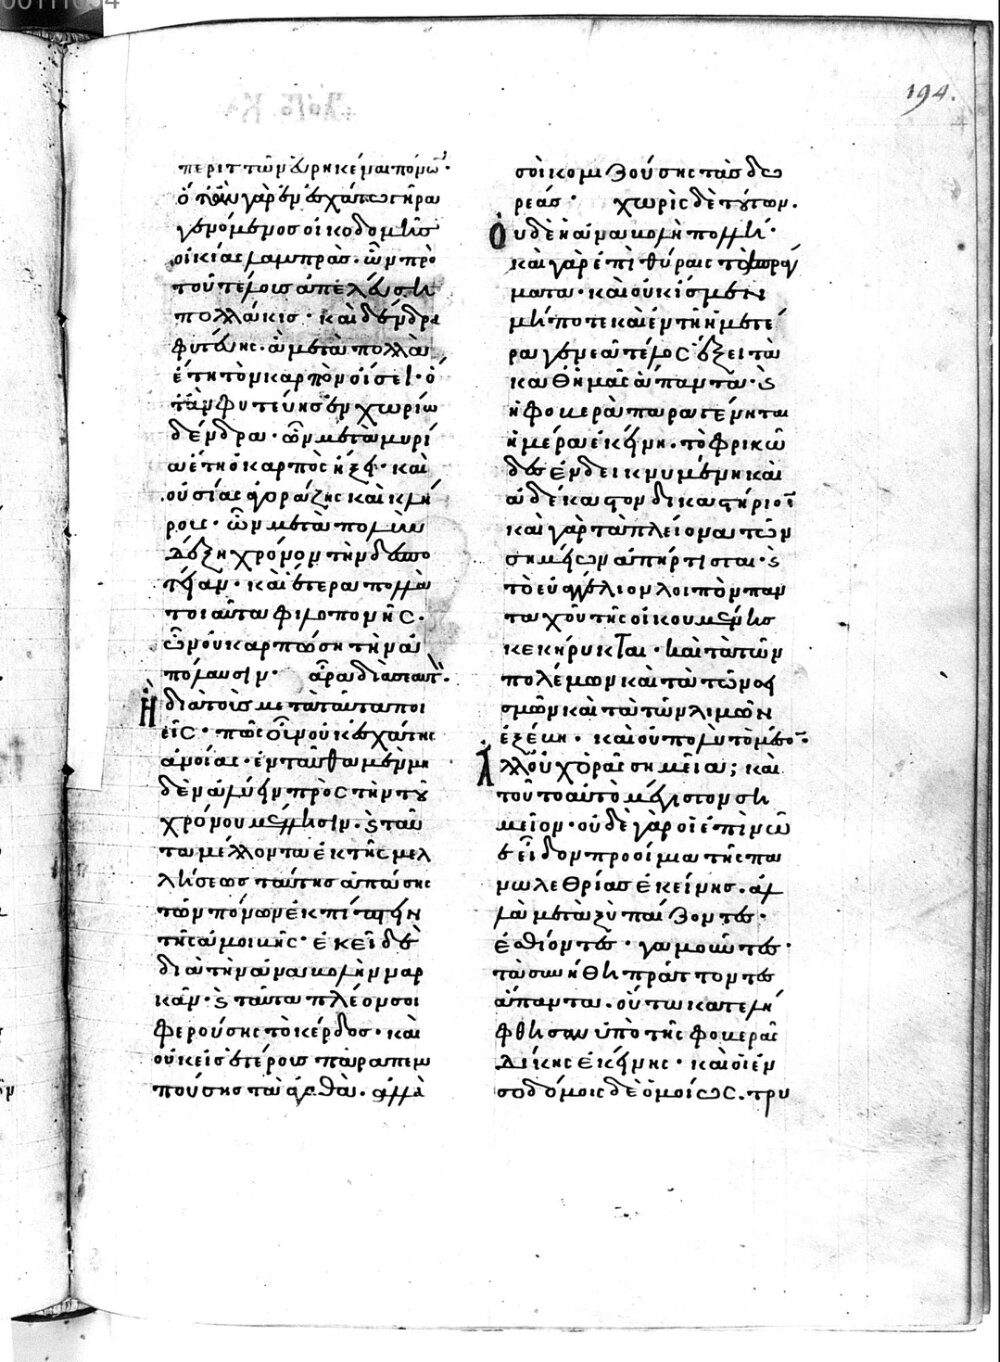 194.
περιττῶν εὑρηκέναι πόνων·
ὅταν γὰρ ἐν ἐσχάτω γήρα
γενόμενος οἰκοδομῆς
οἰκίας λαμπρὰσ· ὧν πρὸ
τοῦ τέλους ἀπελεύση
πολλάκις· καὶ δένδρα
φυτεύης· ἃ μετὰ πολλὰ
ἔτη τὸν καρπὸν οἴσει· ὅ
ταν φυτεύης ἐν χωρίω
δένδρα· ὧν μετὰ μυρί
α ἔτη ὁ καρπὸς ἥξει· καὶ
οὐσίας ἀγοράζης καὶ κλή
ρους· ὧν μετὰ πολὺν
δέξη χρόνον τὴν δεσπο
τείαν· καὶ ἕτερα πολλὰ
τοιαῦτα φιλοπονῆς·
ὧν οὐ καρπώση τὴν ἀ
πόλαυσιν· ἆρα διὰ σεαυτὸν·
Ἢ διὰ τοὺς μετὰ ταῦτα ποι
εῖς· πῶς οὖν οὐκ ἐσχάτης
ἀνοίας· ἐνταῦθα μὲν μη
δὲν ἀλύειν πρὸς τὴν τοῦ
χρόνου μέλλησιν· καὶ ταῦ
τα μέλλοντα ἐκ τῆς μελ
λήσεως ταύτης ἁπάσης
τῶν πόνων ἐκπίπτειν
τῆς ἀμοιβῆς· ἐκεῖ δὲ
διὰ τὴν ἀναβολὴν ναρ
κᾶν· καὶ ταῦτα πλέον σοι
φερούσης τὸ κέρδος· καὶ
οὐκ εἰς ἑτέρους παραπεμ
πούσης τὰ ἀγαθὰ· ἀλλὰ
σοὶ κομιζούσης τὰς δω
ρεάς· χωρὶς δὲ τούτων·
Οὐδὲν ἡ ἀναβολὴ πολλή·
καὶ γὰρ ἐπὶ θύραις τὰ πράγ
ματα· καὶ οὐκ ἴσμεν
μήποτε καὶ ἐν τῆ ἡμετέ
ρα γενεᾶ τέλος ἕξει τὰ
καθ ἡμᾶς ἅπαντα· καὶ
ἡ φοβερὰ παραγένηται
ἡμέρα ἐκείνη· τὸ φρικῶ
δες ἐνδεικνυμένη καὶ
ἀδέκαστον δικαστήριον
καὶ γὰρ τὰ πλείονα τῶν
σημείων ἀπήρτισται· καὶ
τὸ εὐαγγέλιον λοιπὸν παν
ταχοῦ τῆς οἰκουμένης
κεκήρυκται· καὶ τὰ τῶν
πολέμων καὶ τὰ τῶν σει
σμῶν καὶ τὰ τῶν λιμῶν
ἐξέβη· καὶ οὐ πολὺ τὸ μέσον·
Ἀλλ οὐχ ὁρᾶς σημεῖα; καὶ
τοῦτο αὐτὸ μέγιστον ση
μεῖον· οὐδὲ γὰρ οἱ ἐπὶ νῶ
ε εἶδον προοίμια τῆς πα
νωλεθρίας ἐκείνης· ἀλ
λὰ μεταξὺ παίζοντες·
ἐσθίοντες· γαμοῦντες·
τὰ συνήθη πράττοντες
ἅπαντα· οὕτω κατελή
φθησαν ὑπὸ τῆς φοβερᾶς
δίκης ἐκείνης· καὶ οἱ ἐν
σοδόμοις δὲ ὁμοίως· τρυ